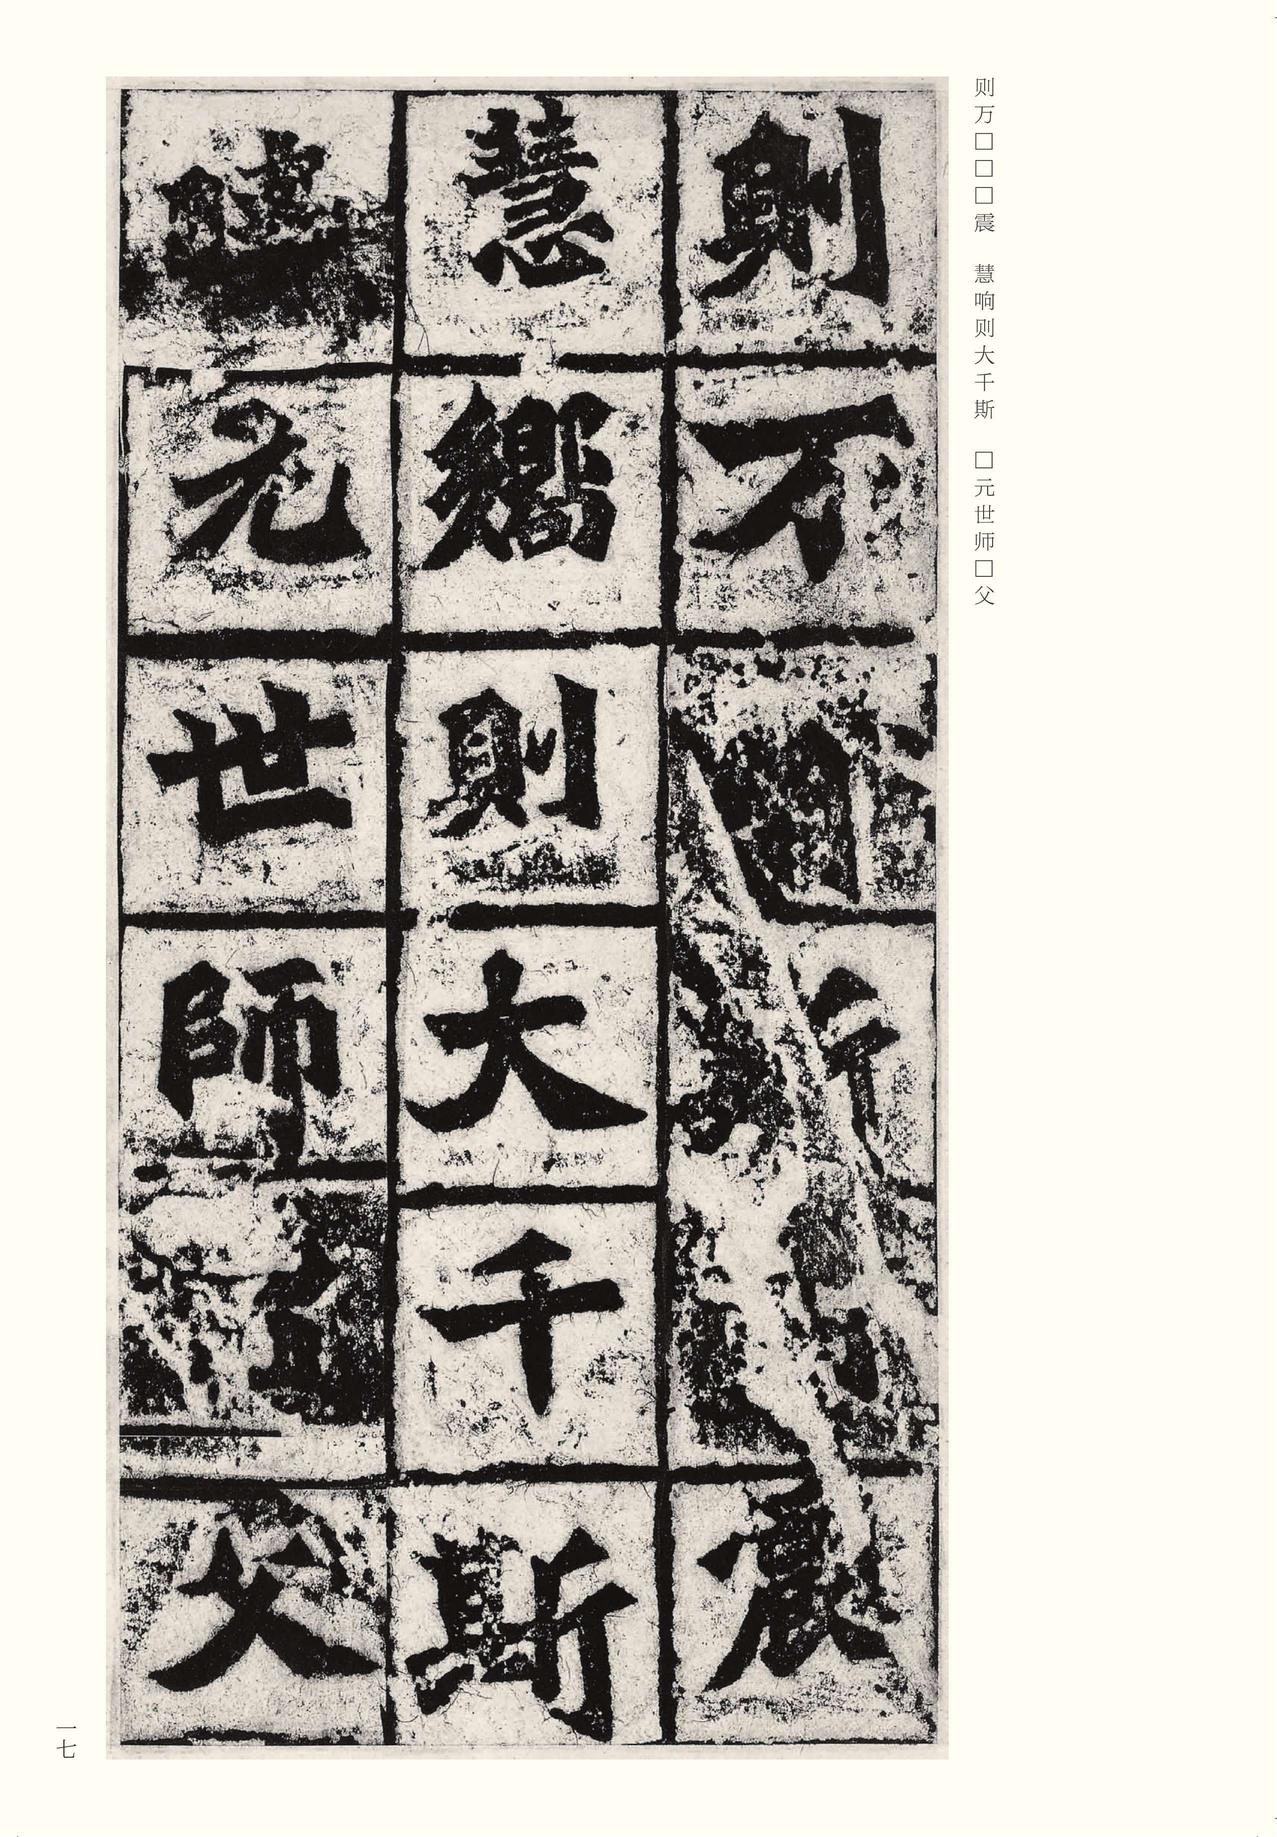 則万震
慧嚮則大千斯
元世師父
则万□□□震 慧响则大千斯 □元世师□父
一七